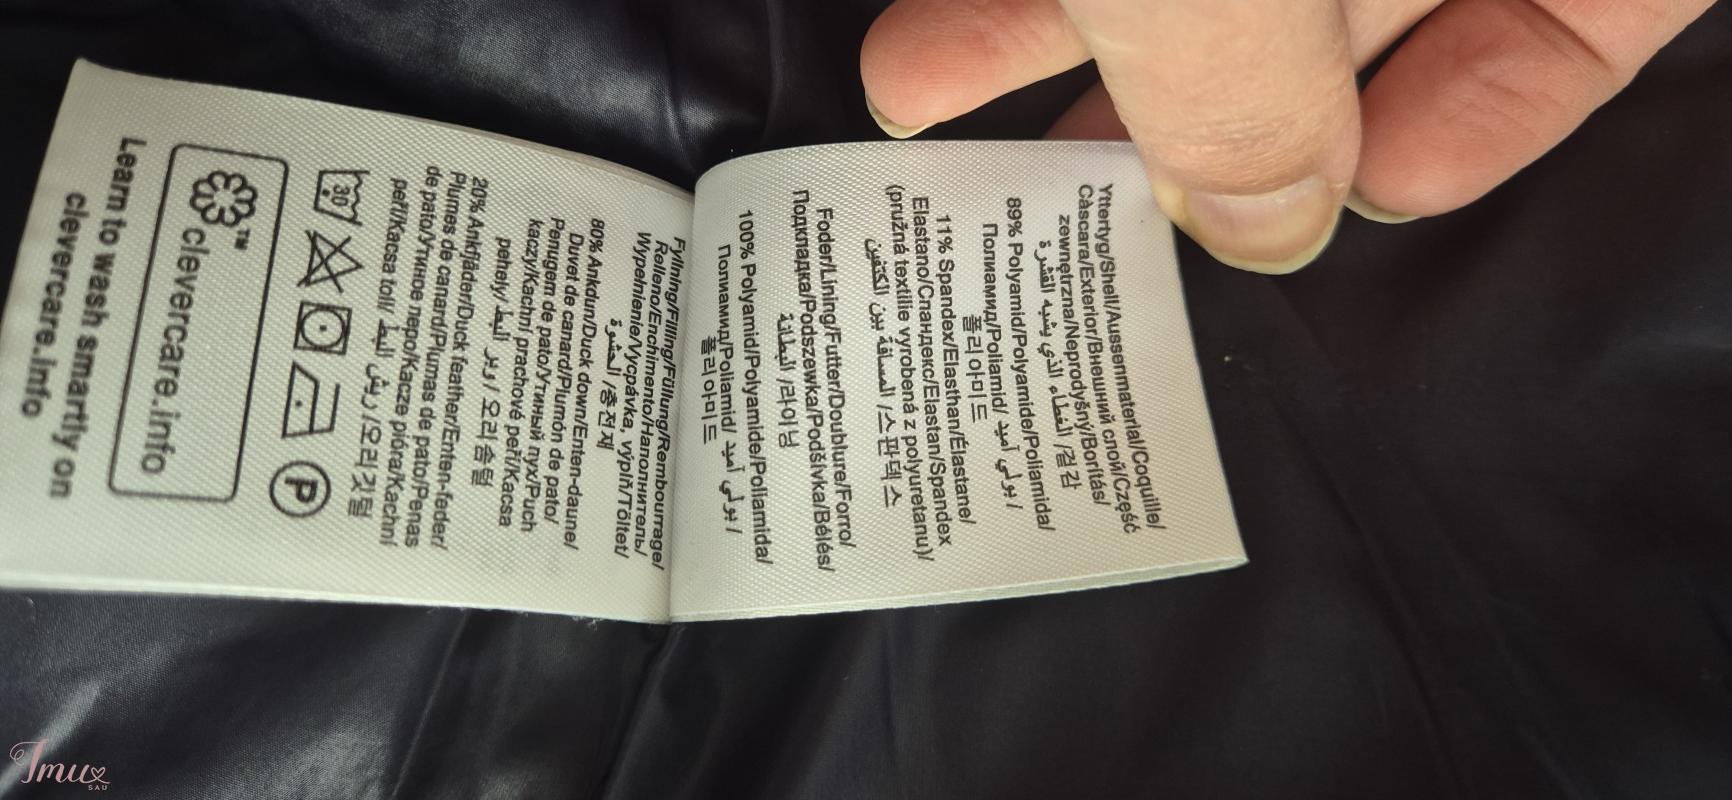 Yttertyg/Shell/Aussenmaterial/Coquille/
Càscara/Exterior/Внешний слой/Część
zewnętrzna/Neprodyšný/Borítás/
الغطاء الذي يشبه القشرة /겉감
89% Polyamid/Polyamide/Poliamida/
Полиамид/Poliamid/ بولي أميد /
폴리아미드
11% Spandex/Elasthan/Élastane/
Elastano/Спандекс/Elastan/Spandex
(pružná textilie vyrobená z polyuretanu)/
المسافة بين الكتفين /스판덱스
Foder/Lining/Futter/Doublure/Forro/
Подкладка/Podszewka/Podšívka/Bélés/
البطانة /라이닝
100% Polyamid/Polyamide/Poliamida/
Полиамид/Poliamid/ بولي أميد /
폴리아미드
Fyllning/Filling/Füllung/Rembourrage/
Relleno/Enchimento/Наполнитель/
Wypełnienie/Vycpávka, výplň/Töltet/
الحشوة /충전재
80% Ankdun/Duck down/Enten-daune/
Duvet de canard/Plumón de pato/
Penugem de pato/Утиный пух/Puch
kaczy/Kachní prachové peří/Kacsa
pehely/ وبر البط / 오리솜털
20% Ankfjäder/Duck feather/Enten-feder/
Plumes de canard/Plumas de pato/Penas
de pato/Утиное перо/Kacze pióra/Kachní
peří/Kacsa toll/ ريش البط /오리깃털
30
P
clevercare.info
TM
Learn to wash smartly on
clevercare.info
Imux
SAU